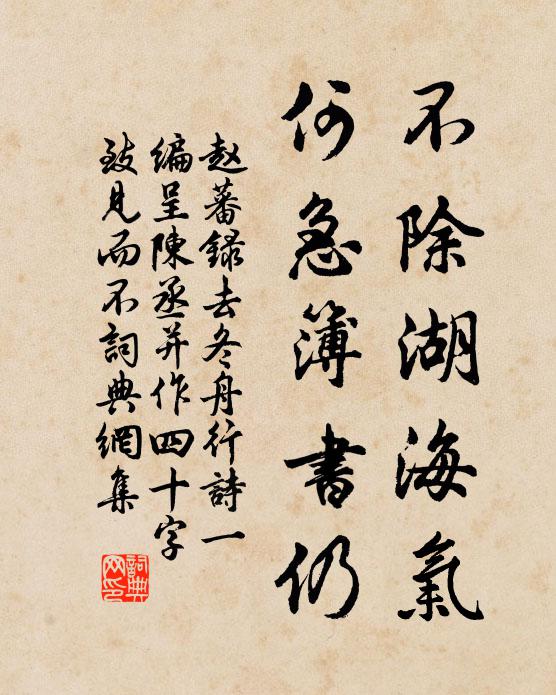 不除湖海氣
何急簿書仍
赵蕃録去冬舟行詩一
编呈陳丞并作四十字
致見而不詞典網集
詞典网印